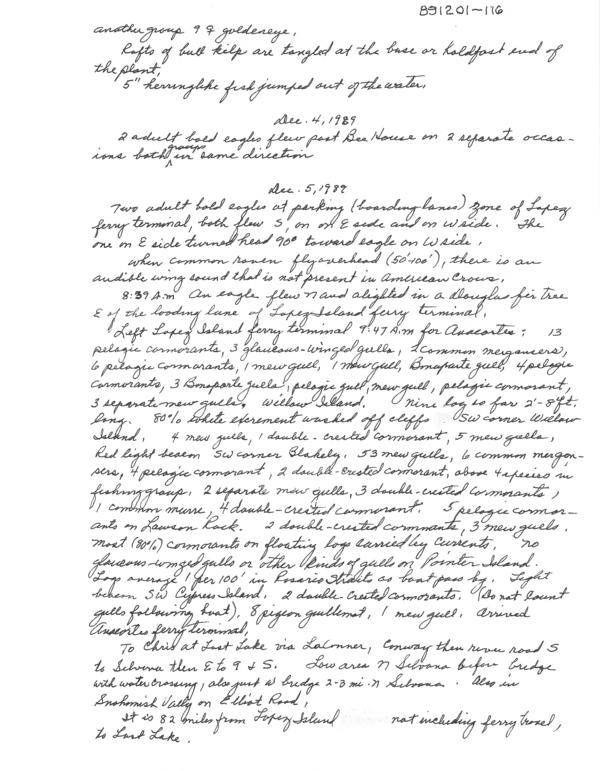 891201-116
another group 9 ♀ goldeneye.
Rafts of bull kelp are tangled at the base or holdfast end of
the plant.
5" herringlike fish jumped out of the water.
Dec. 4, 1989
2 adult bald eagles flew past Bee House on 2 separate occas-
ions both groups in same direction
Dec. 5, 1989
Two adult bald eagles at parking (boarding lanes) zone of Lopez
ferry terminal, both flew S, on on E side and on W side. The
one on E side turned head 90° toward eagle on W side.
When common raven fly overhead (50'-100'), there is an
audible wing sound that is not present in American Crows.
8:39 A.m An eagle flew N and alighted in a Douglas fir tree
E of the loading lane of Lopez Island ferry terminal.
Left Lopez Island ferry terminal 9:47 A.m for Anacortes: 13
pelagic cormorants, 3 glaucous-winged gulls, common mergansers,
6 pelagic cormorants, 1 mew gull, 1 mew gull, Bonaparte gull, 4 pelagic
cormorants, 3 Bonaparte gulls, pelagic gull, mew gull, pelagic cormorant,
3 separate mew gulls. Willow Island. Nine log so far 2'-8 ft.
long. 80% white excrement washed off cliffs SW corner Willow
Island. 4 mew gulls, 1 double-crested cormorant, 5 mew gulls,
Red light beacon SW corner Blakely. 53 mew gulls, 6 common mergan-
sers, 4 pelagic cormorant, 2 double-crested cormorant, above 4 species in
fishing group. 2 separate mew gulls, 3 double-crested cormorants,
1 common murre, 4 double-crested cormorant. 5 pelagic cormor-
ants on Lawson Rock. 2 double-crested cormorants, 3 mew gulls.
Most (80%) cormorants on floating logs carried by currents. No
glaucous-winged gulls or other kinds of gulls on Pointer Island.
Logs average 1 per 100' in Rosario Straits as boat pass by. Light
beacon SW Cypress Island. 2 double-crested cormorants. (Do not count
gulls following boat), 8 pigeon guillemot, 1 mew gull. Arrived
Anacortes ferry terminal.
To Chris at Lost Lake via LaConner, Conway then river road S
to Silvana then E to 9 & S. Low area N Silvana before bridge
with water crossing, also just W bridge 2-3 mi. N Silvana. Also in
Snohomish Vally on Elliot Road.
It is 82 miles from Lopez Island not including ferry travel,
to Lost Lake.